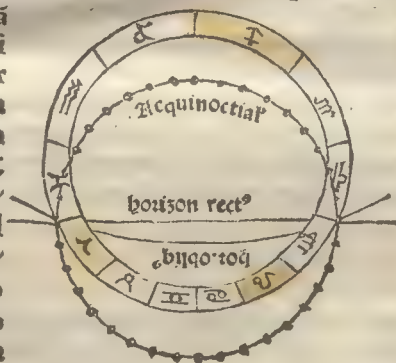 Aequinoctial
horizon rectꝰ
hor.obliqꝰ